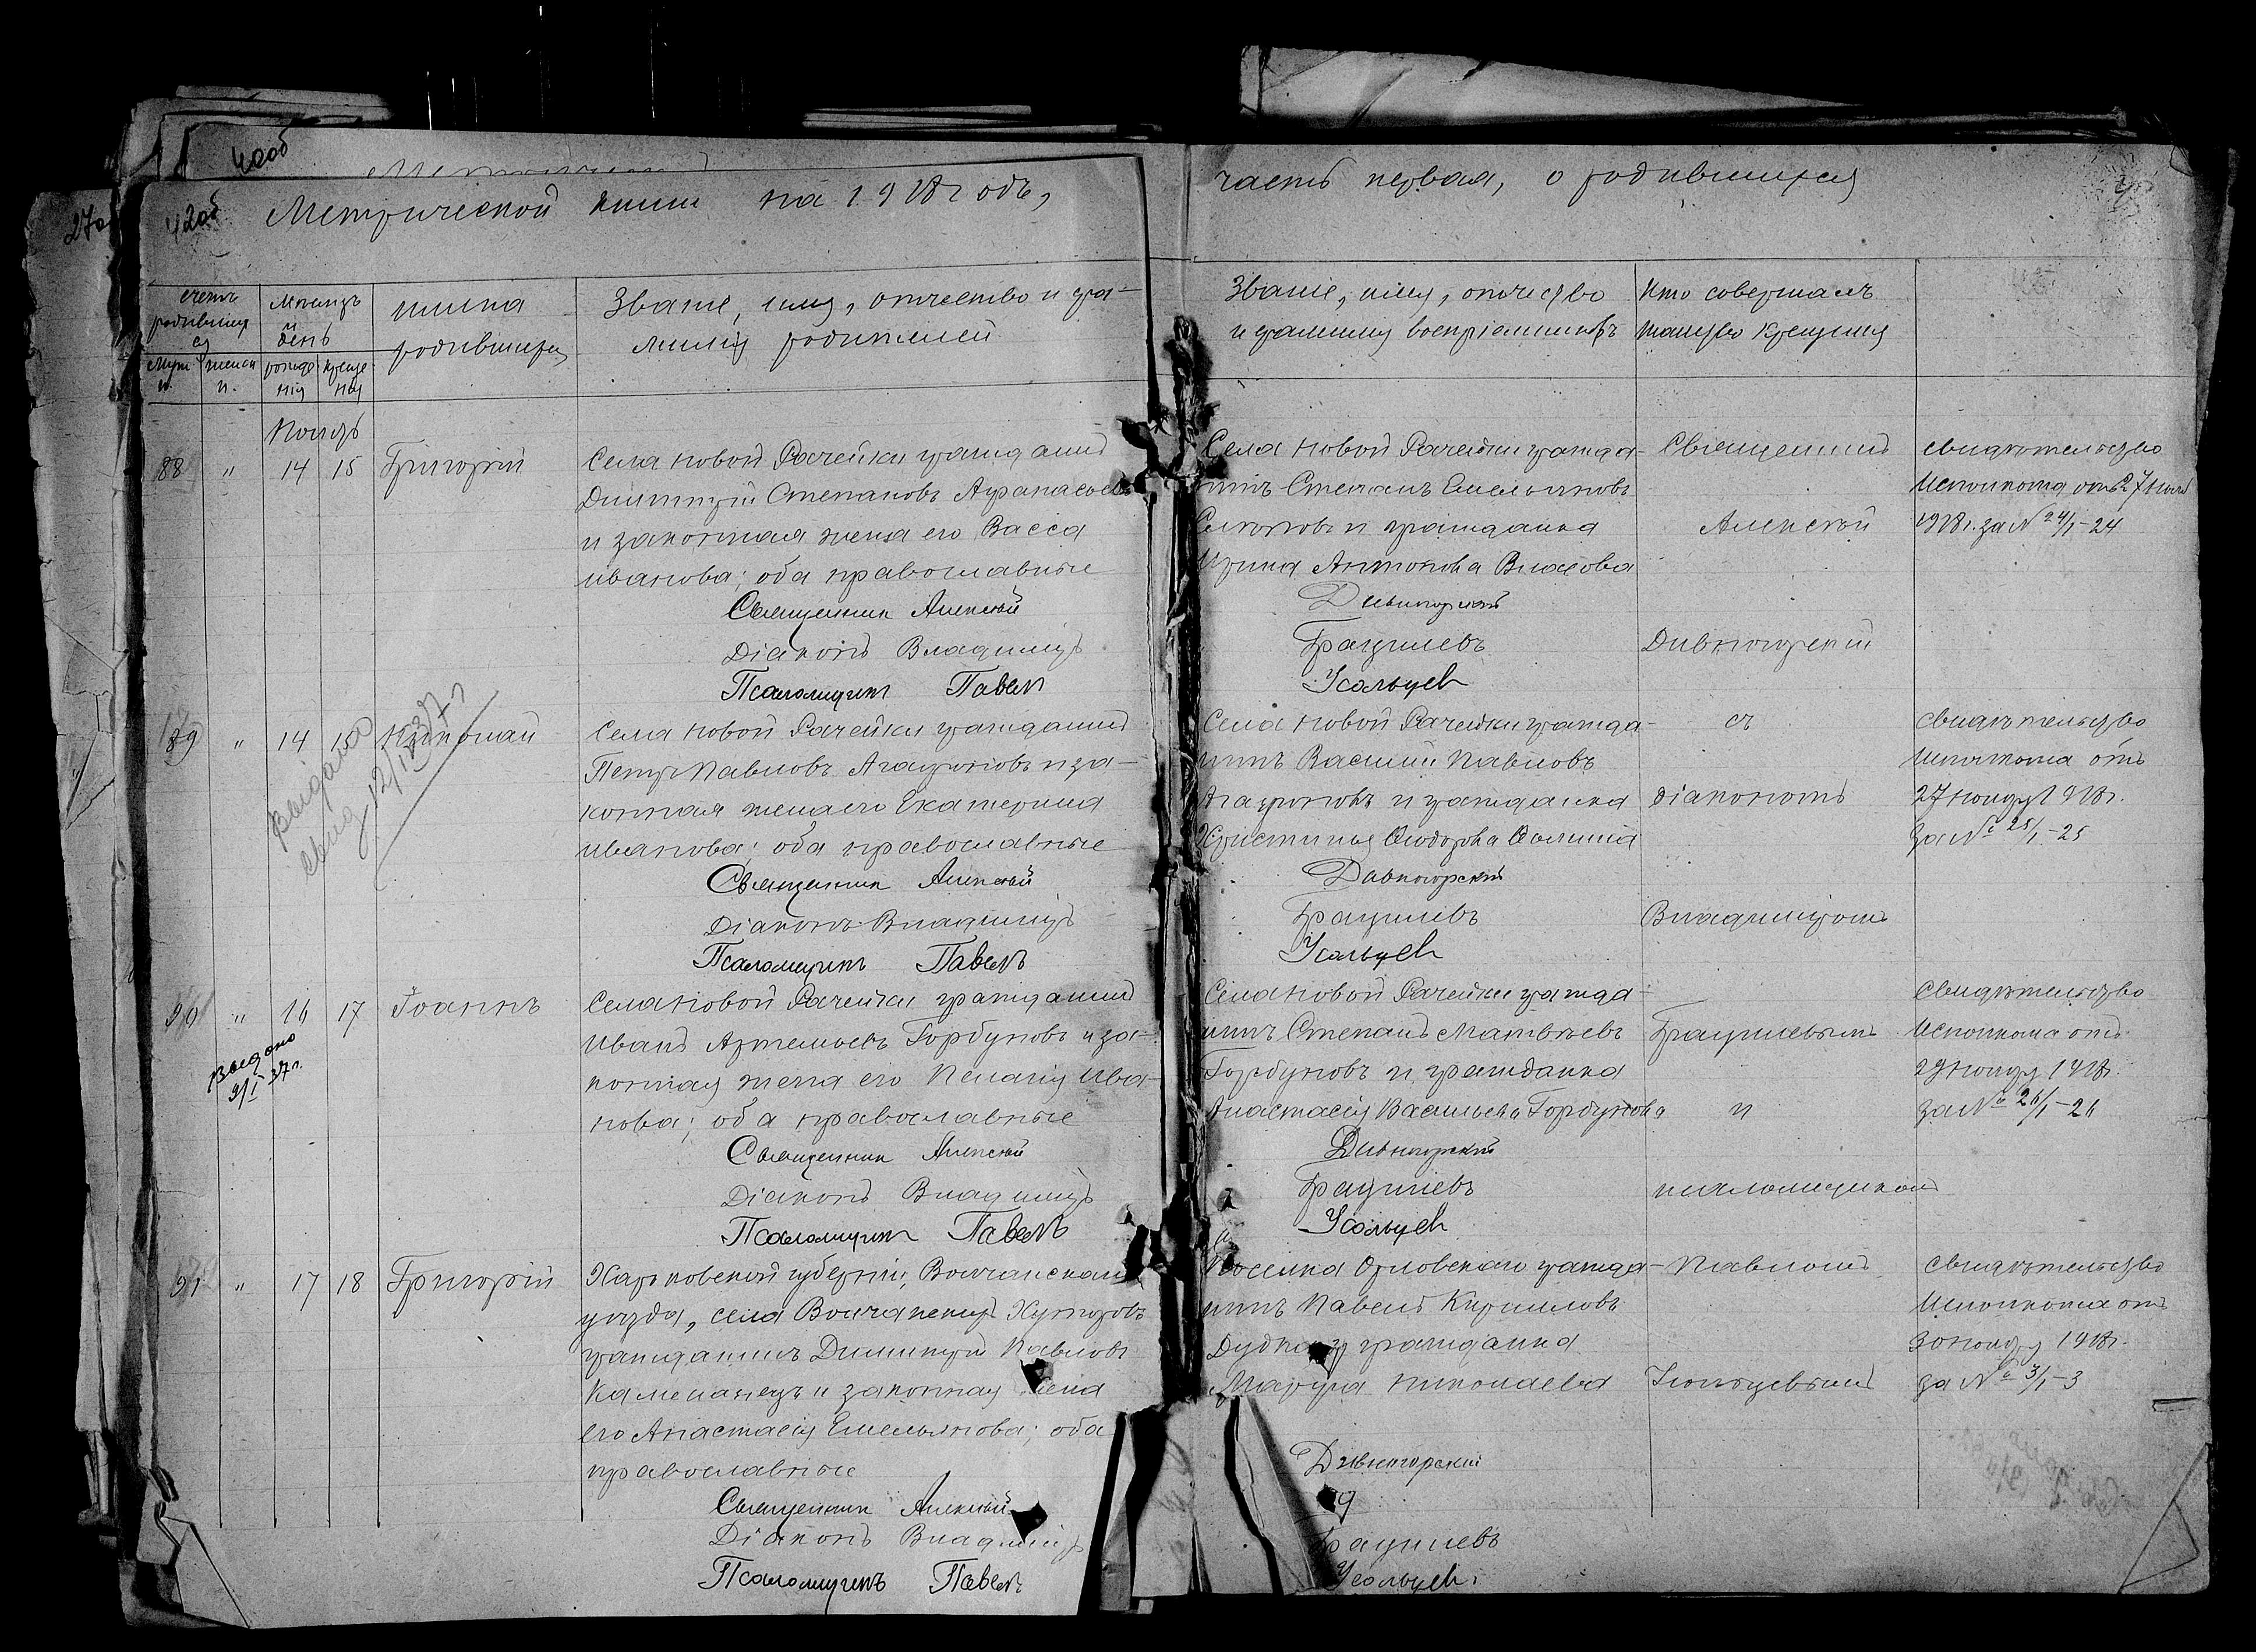 40об
27об
42об
Метрической книги на 1918 годъ,
часть первая, о родившихся
Счетъ родившихся
Мѣсяцъ и день
Имена родившихся
Званіе, имя, отчество и фа-
милія родителей
Званіе, имя, отчество
и фамилія воспріемниковъ
Кто совершалъ
таинство крещенія
Муж. п.
женск. п.
рожде нія
креще нія
Ноябрь
88 " 14 15 Григорій
Села Новой Рачейки гражданинъ
Димитрій Степановъ Афанасьевъ
и законная жена его Васса
Иванова; оба православные
Священникъ Алексѣй
Діаконъ Владиміръ
Псаломщикъ Павелъ
Села Новой Рачейки гражда-
нинъ Степанъ Емельяновъ
и гражданка
Ирина Антонова Власова
Дивногорскій
Грацилевъ
Усольцев
Священникъ
Алексѣй
Дивногорскій
Свидѣтельство
Исполкома отъ 27 нояб
1918г. за № 24/1-24
89 " 14 15
Выдана
свид 12/I 37 г
Села Новой Рачейки гражданинъ
Петръ Павловъ Агафоновъ и за-
конная жена его Екатерина
Иванова; оба православные
Священникъ Алексѣй
Діаконъ Владиміръ
Псаломщикъ Павелъ
Села Новой Рачейки гражда-
нинъ Василій Павловъ
Агафоновъ и гражданка
Христинія Ѳеодорова
Дивногорскій
Грацилевъ
Усольцев
съ
діакономъ
Владиміромъ
Свидѣтельство
Исполкома отъ
27 ноября 1918г.
за № 25/1-25
90 " 16 17 Іоаннъ
Выдано
9/I 37 г.
Села Новой Рачейки гражданинъ
Иванъ Артемьевъ Горбуновъ и за-
конная жена его Пелагія Ива-
нова; оба православные
Священникъ Алексѣй
Діаконъ Владиміръ
Псаломщикъ Павелъ
Села Новой Рачейки гражда-
нинъ Степанъ Матвѣевъ
Горбуновъ и гражданка
Анастасія Васильева Горбунова
Дивногорскій
Грацилевъ
Усольцев
Грацилевымъ
и
псаломщикомъ
Свидѣтельство
Исполкома отъ
29 ноября 1918г.
за № 26/1-26
91 " 17 18 Григорій
Харьковской губерніи, Волчанскаго
уѣзда, села Волчанскихъ Хуторовъ
гражданинъ Димитрій Павловъ
Каменанецъ и законная жена
его Анастасія Емельянова; оба
православные
Священникъ Алексѣй
Діаконъ Владиміръ
Псаломщикъ Павелъ
Поселка Орловскаго гражда-
нинъ Павелъ Кирилловъ
гражданка
Марфа Николаева
Дивногорскій
Грацилевъ
Усольцев.
Павломъ
Усольцевымъ
Свидѣтельство
Исполкома отъ
30 ноября 1918г.
за № 3/1-3